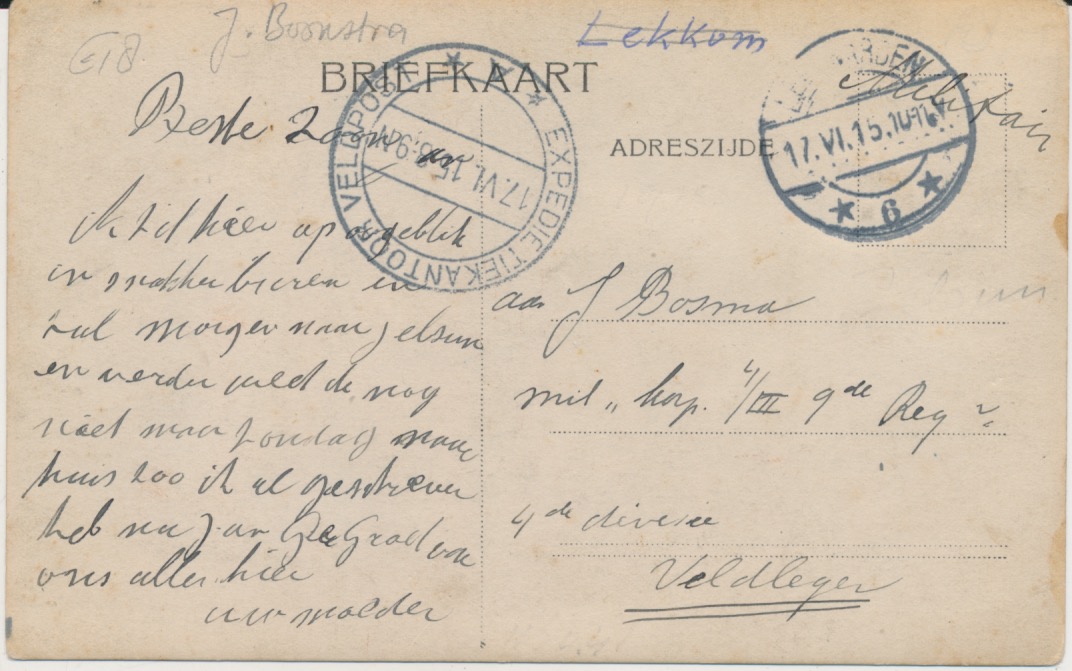 E18
J. Boonstra
Lekkom
BRIEFKAART
ADRESZIJDE
Militair
EXPEDITIEKANTOOR VELDPOST
17.VI.15.8-9
LEEUWARDEN
17.VI.15.10-11
6
Beste Zoon
ik zit hier op ogeblik
in
zal morgen naar Jelsum
en verder weet ik nog
niet maar zondag naar
huis zoo ik al geschreven
heb nu Jan Gegroet van
ons allen hier
uw moeder
aan J Bosma
mil korp. 4/III 9de Reg
4de divisie
Veldleger